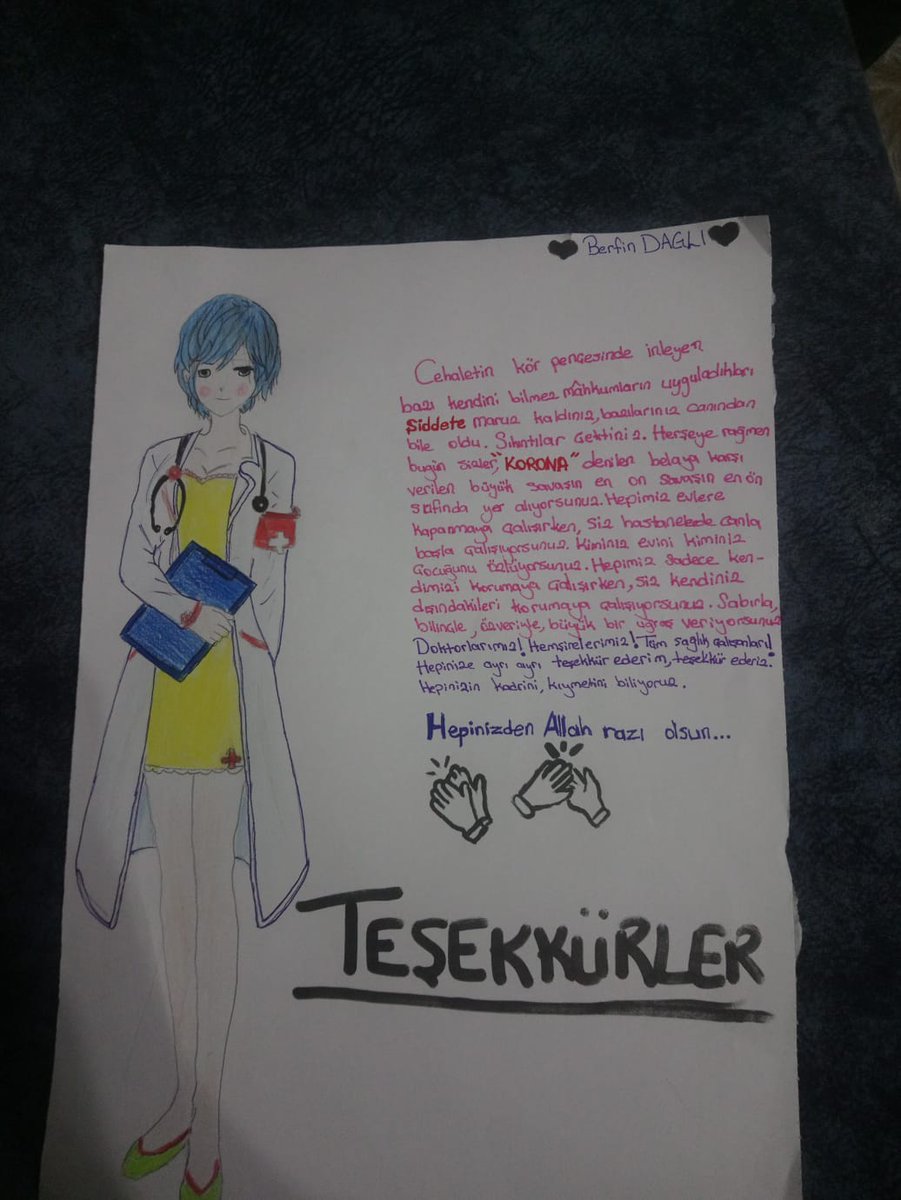 Berfin DAGLI
Cehaletin kör pençesinde inleyen
bazı kendini bilmez mâhkumların uyguladıkları
Şiddete maruz kaldınız, bazılarınız canından
bile oldu. Sıkıntılar çektiniz. Herşeye rağmen
bugün sizler, "KORONA" denilen belaya karşı
verilen büyük savaşın en on savaşın en ön
safında yer alıyorsunuz. Hepimiz evlere
kapanmaya çalışırken, siz hastanelede canla
başla çalışıyorsunuz. Kiminiz evini kiminiz
çocuğunu özlüyorsunuz. Hepimiz sadece ken-
dimizi korumaya çalışırken, siz kendiniz
dışındakileri korumaya çalışıyorsunuz. Sabırla,
bilinçle, özveriyle, büyük bir uğraş veriyorsunuz
Doktorlarımız! Hemşirelerimiz! Tüm sağlık çalışanları!
Hepinize ayrı ayrı teşekkür ederim, teşekkür ederiz.
Hepinizin kadrini, kıymetini biliyoruz.
Hepinizden Allah razı olsun...
TEŞEKKÜRLER